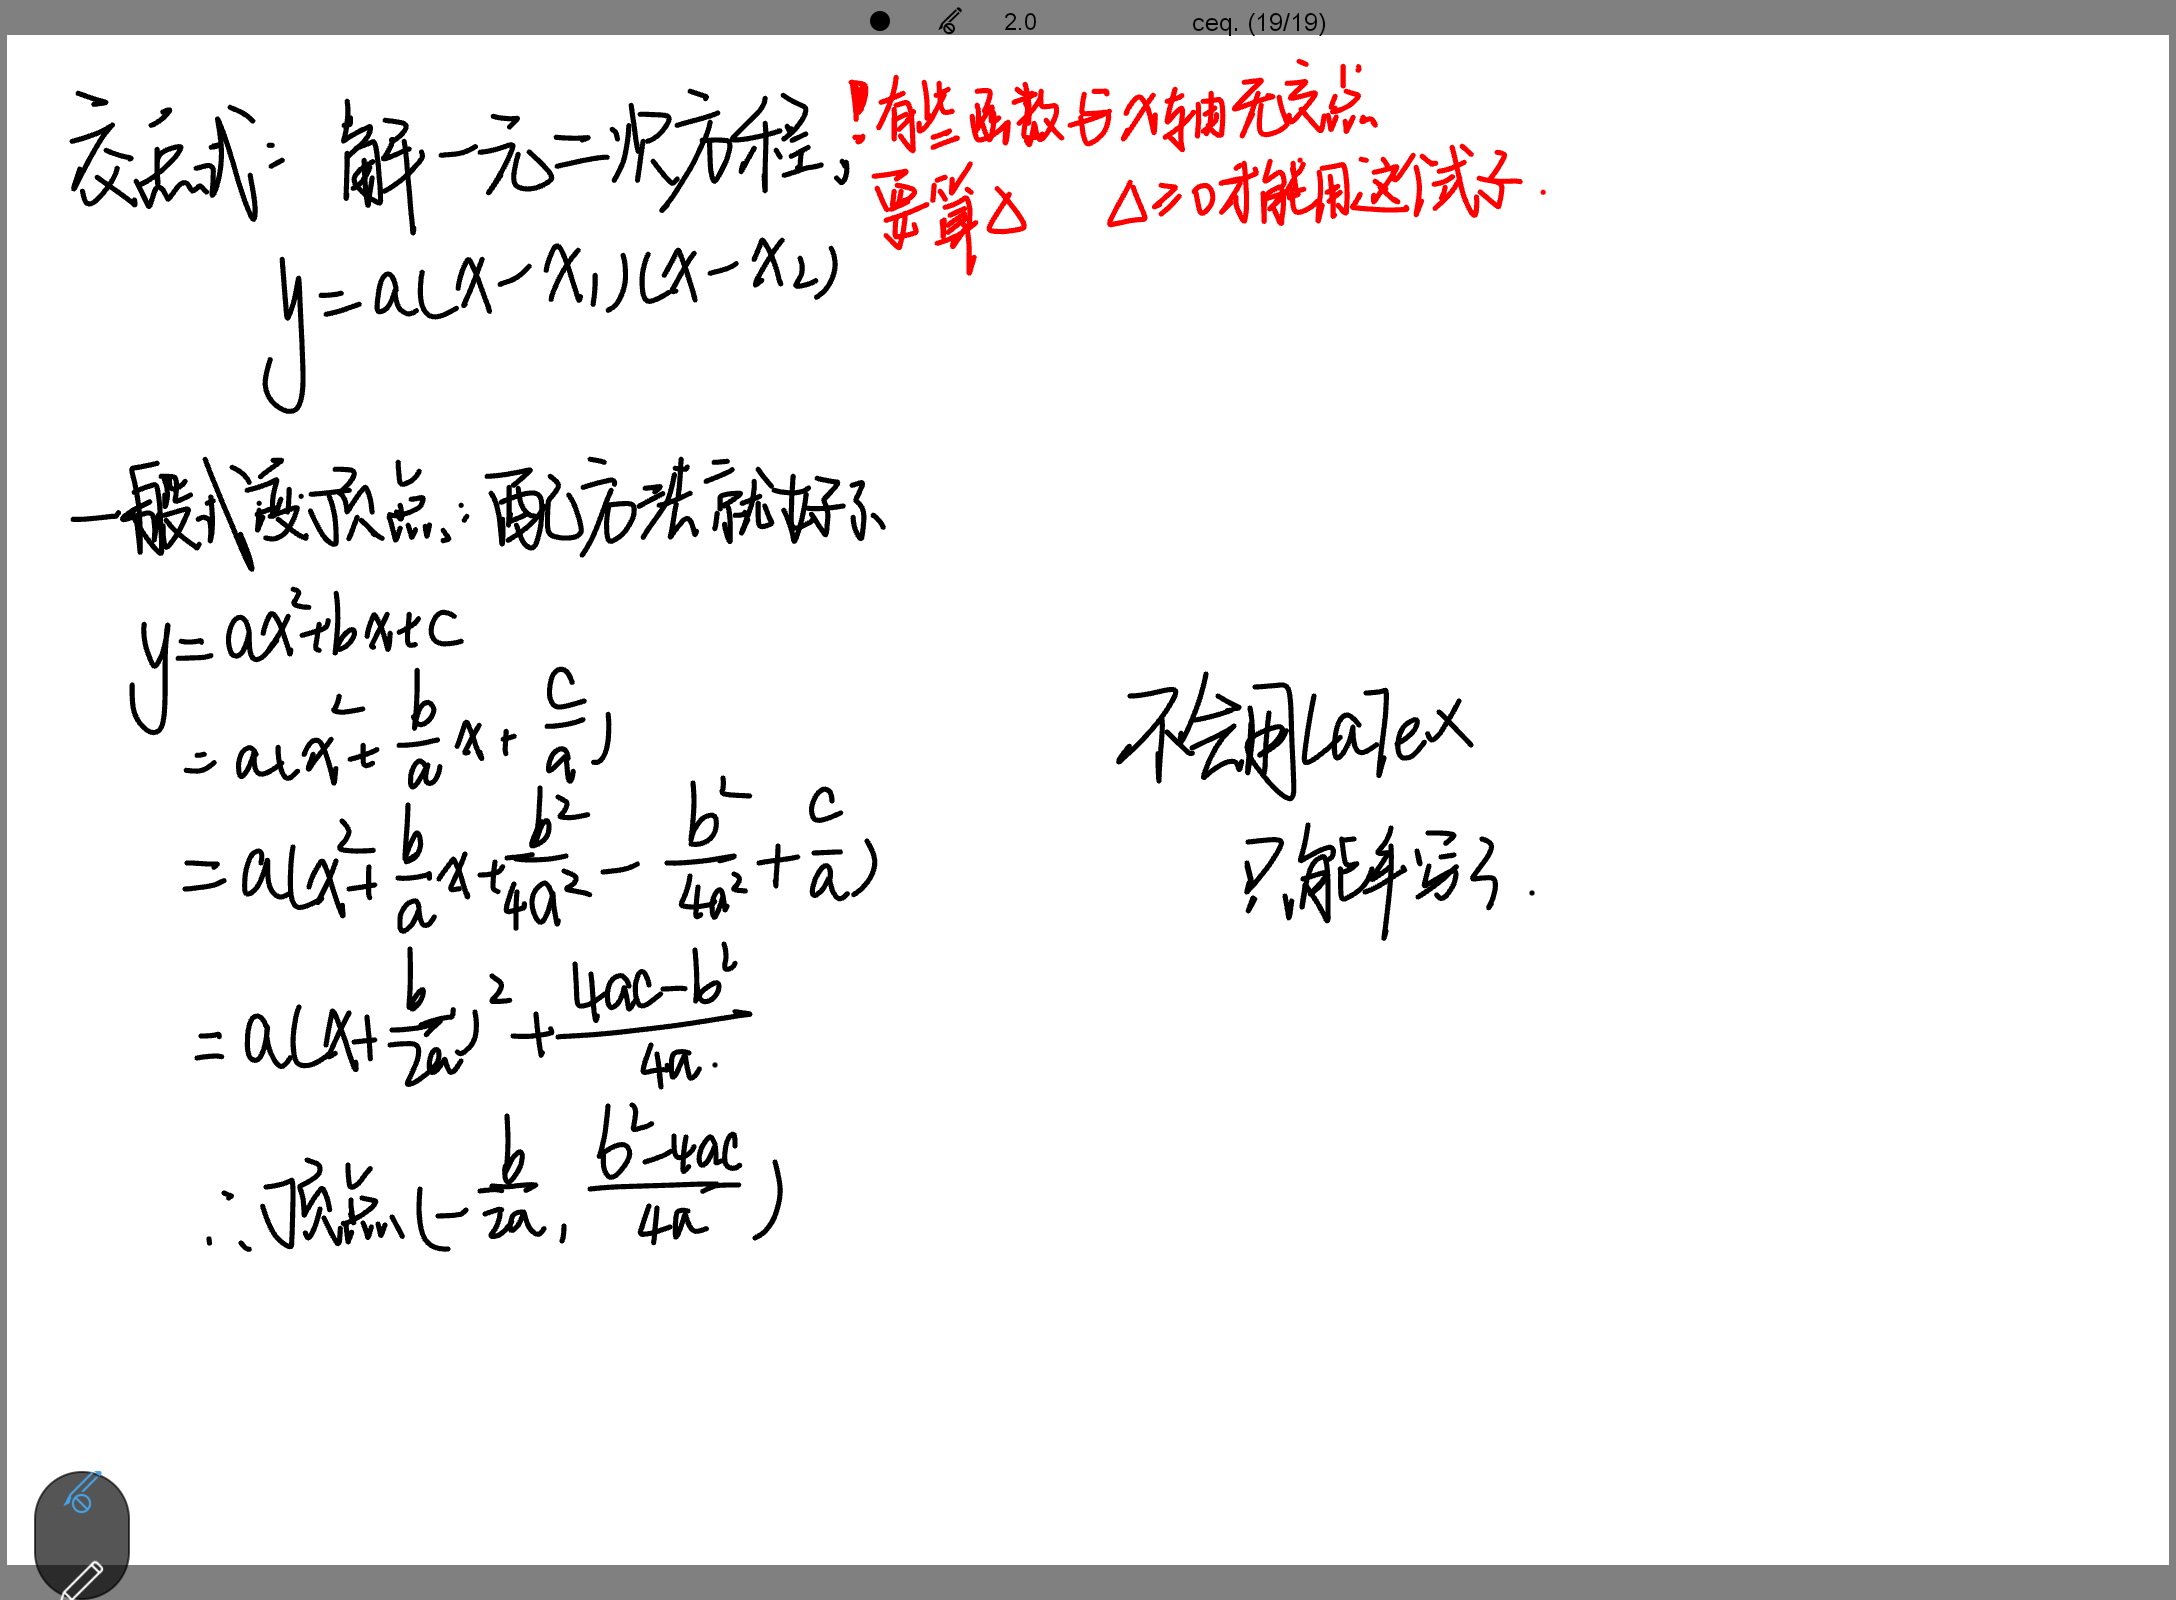 2.0 ceq. (19/19)
交点式: 解一元二次方程,
!有些函数与x轴无交点
要算△ △≥0才能用这式子.
y=a(x-x₁)(x-x₂)
一般式变顶点: 配方法就好了
y=ax²+bx+c
=a(x²+\frac{b}{a}x+\frac{c}{a})
=a(x²+\frac{b}{a}x+\frac{b²}{4a²}-\frac{b²}{4a²}+\frac{c}{a})
=a(x+\frac{b}{2a})²+\frac{4ac-b²}{4a}.
∴顶点(-\frac{b}{2a}, \frac{b²-4ac}{4a})
不会用LaTex
只能手写了.